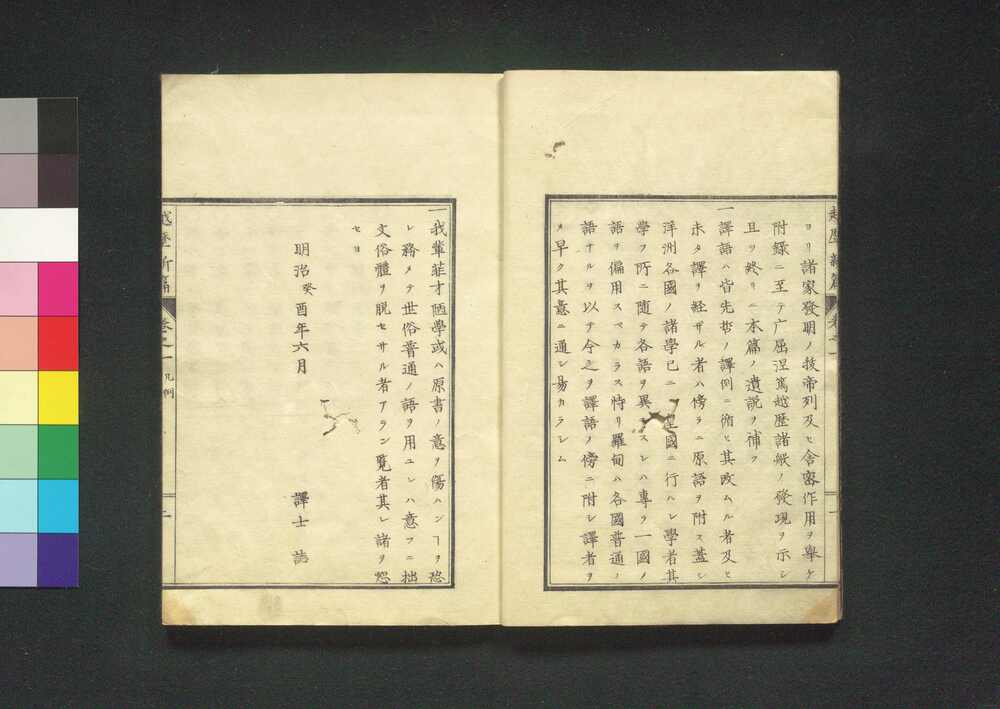 越歴新篇 卷之一 一
ヨリ諸家發明ノ抜帝列及ヒ舎密作用ヲ擧ケ
附録ニ至テ广屈涅篤越歴諸般ノ發現ヲ示シ
且ツ終リニ本篇ノ遺説ヲ補フ
一譯語ハ皆先哲ノ譯例ニ循ヒ其改ムル者及ヒ
未タ譯ヲ経ザル者ハ傍ラニ原語ヲ附ス蓋シ
洋洲各國ノ諸學已ニ 皇國ニ行ハレ學者其
學フ所ニ隨テ各語ヲ異ニスレハ專ラ一國ノ
語ヲ偏用スベカラス特リ羅甸ハ各國普通ノ
語ナルヲ以テ今之ヲ譯語ノ傍ニ附シ譯者ヲ
メ早ク其意ニ通シ易カラシム
一我輩菲才陋學或ハ原書ノ意ヲ傷ハンヿヲ恐
レ務メテ世俗普通ノ語ヲ用ユレハ意フニ拙
文俗體ヲ脱セサル者アラン覧者其レ諸ヲ恕
セヨ
明治癸酉年六月
譯士 誌
越歴新篇 卷之一 凡例 二